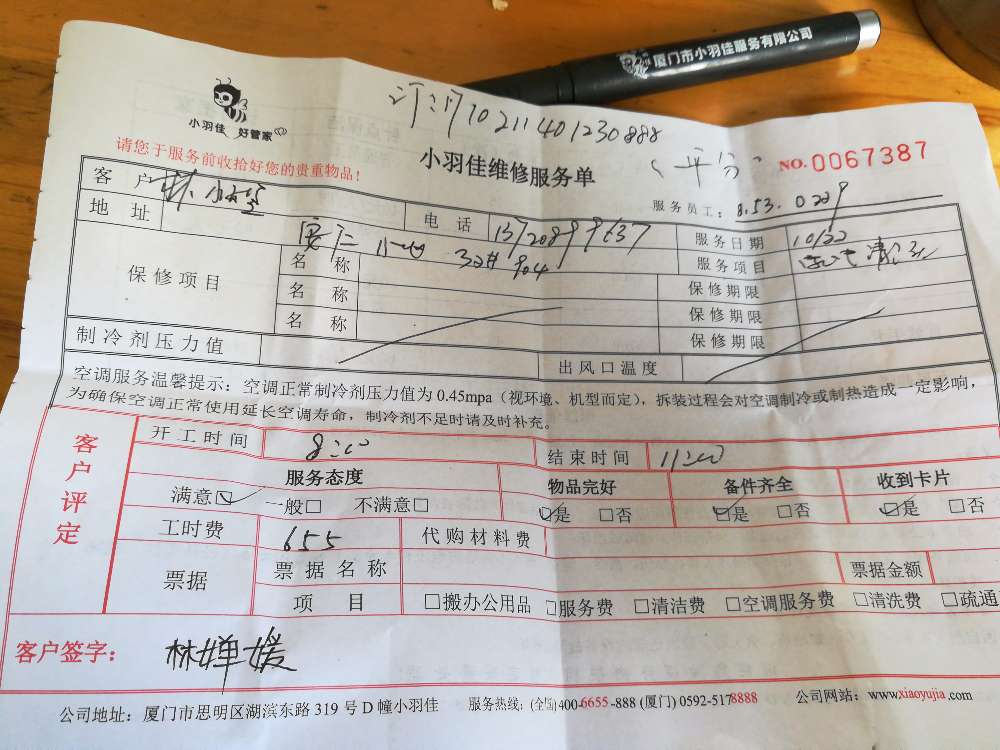 厦门市小羽佳服务有限公司
10211401230888
小羽佳 好管家
(平分)
小羽佳维修服务单
NO.0067387
请您于服务前收拾好您的贵重物品!
服务员工: 8.53. 0229
客户 林小姐 电话 服务日期 10/22
地址 32# 904 服务项目
保修项目 名称 保修期限
名称 保修期限
名称 保修期限
制冷剂压力值 出风口温度
空调服务温馨提示:空调正常制冷剂压力值为0.45mpa(视环境、机型而定),拆装过程会对空调制冷或制热造成一定影响,
为确保空调正常使用延长空调寿命,制冷剂不足时请及时补充。
客户评定
开工时间 8:00 结束时间 11:00
服务态度 物品完好 备件齐全 收到卡片
满意☑ 一般□ 不满意□ ☑是 □否 ☑是 □否 ☑是 □否
工时费 655 代购材料费
票据 票据名称 票据金额
项目 □搬办公用品 □服务费 □清洁费 □空调服务费 □清洗费 □疏通
客户签字: 林婵媛
公司地址:厦门市思明区湖滨东路319号D幢小羽佳 服务热线:(全国)400-6655-888 (厦门) 0592-5178888 公司网站:www.xiaoyujia.com